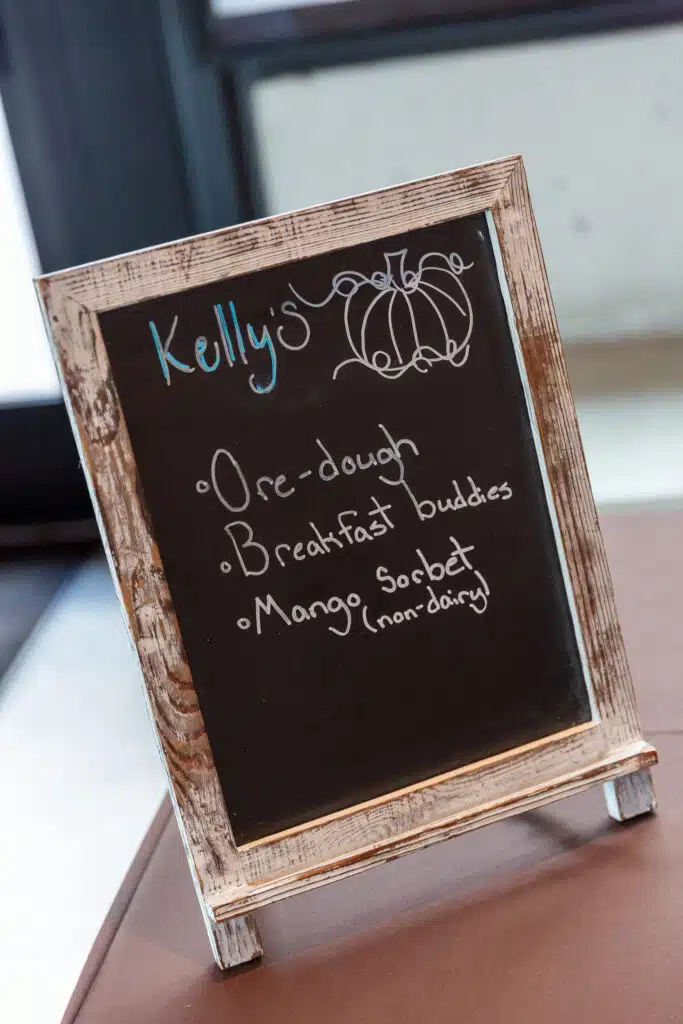 Kelly's
Ore-dough
Breakfast buddies
Mango Sorbet
(non-dairy)